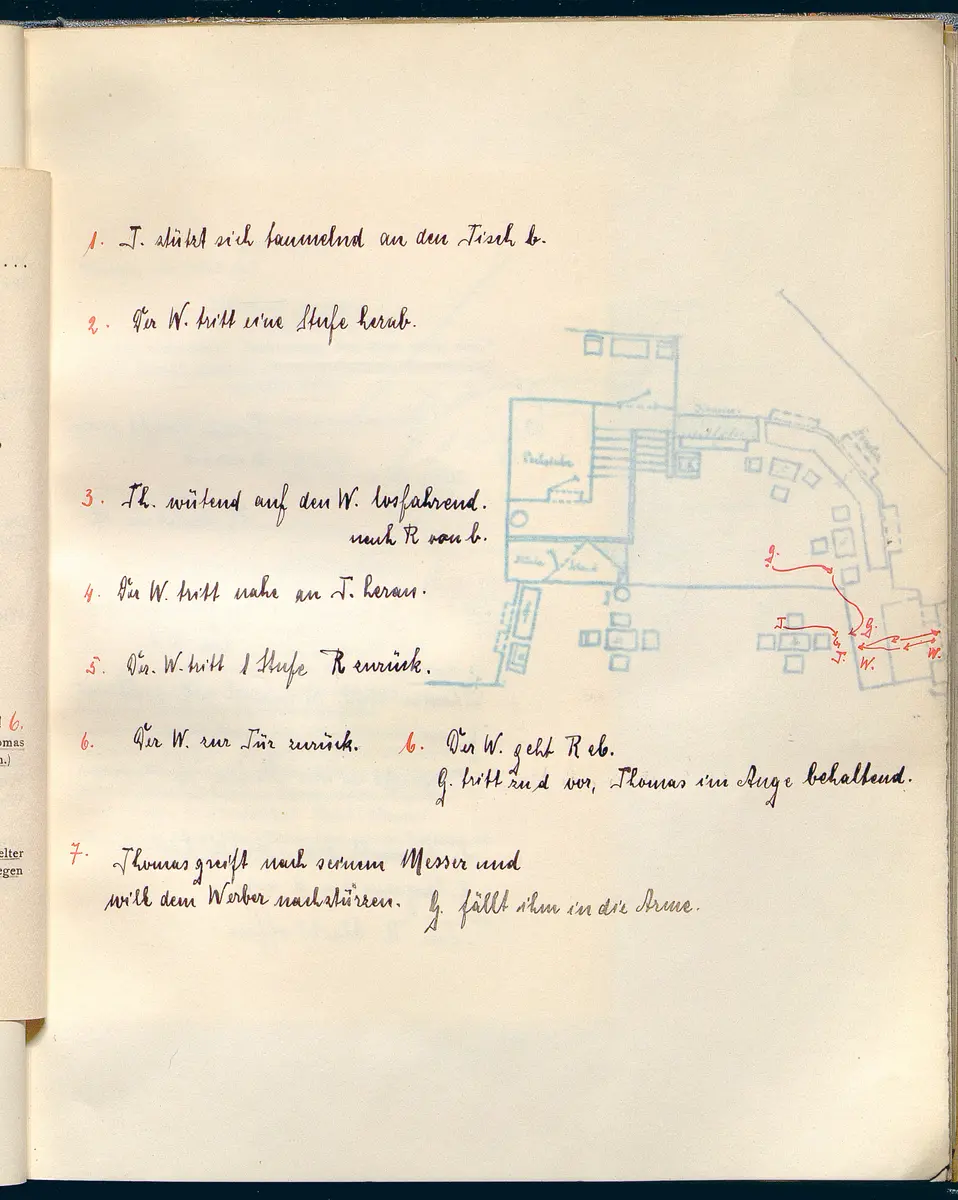 1. T. stützt sich taumelnd an den Tisch b.
2. Der W. tritt eine Stufe herab.
3. Th. wütend auf den W. losfahrend.
nach R von b.
4. Der W. tritt nahe an T. heran.
5. Der W. tritt 1 Stufe R zurück.
6. Der W. zur Tür zurück. 6. Der W. geht R ab.
G. tritt vor, Thomas im Auge behaltend.
7. Thomas greift nach seinem Messer und
will dem Werber nachstürzen. G. fällt ihm in die Arme.
g.
T.
G.
T.
W.
W.
6.
omas
n.)
elter
egen